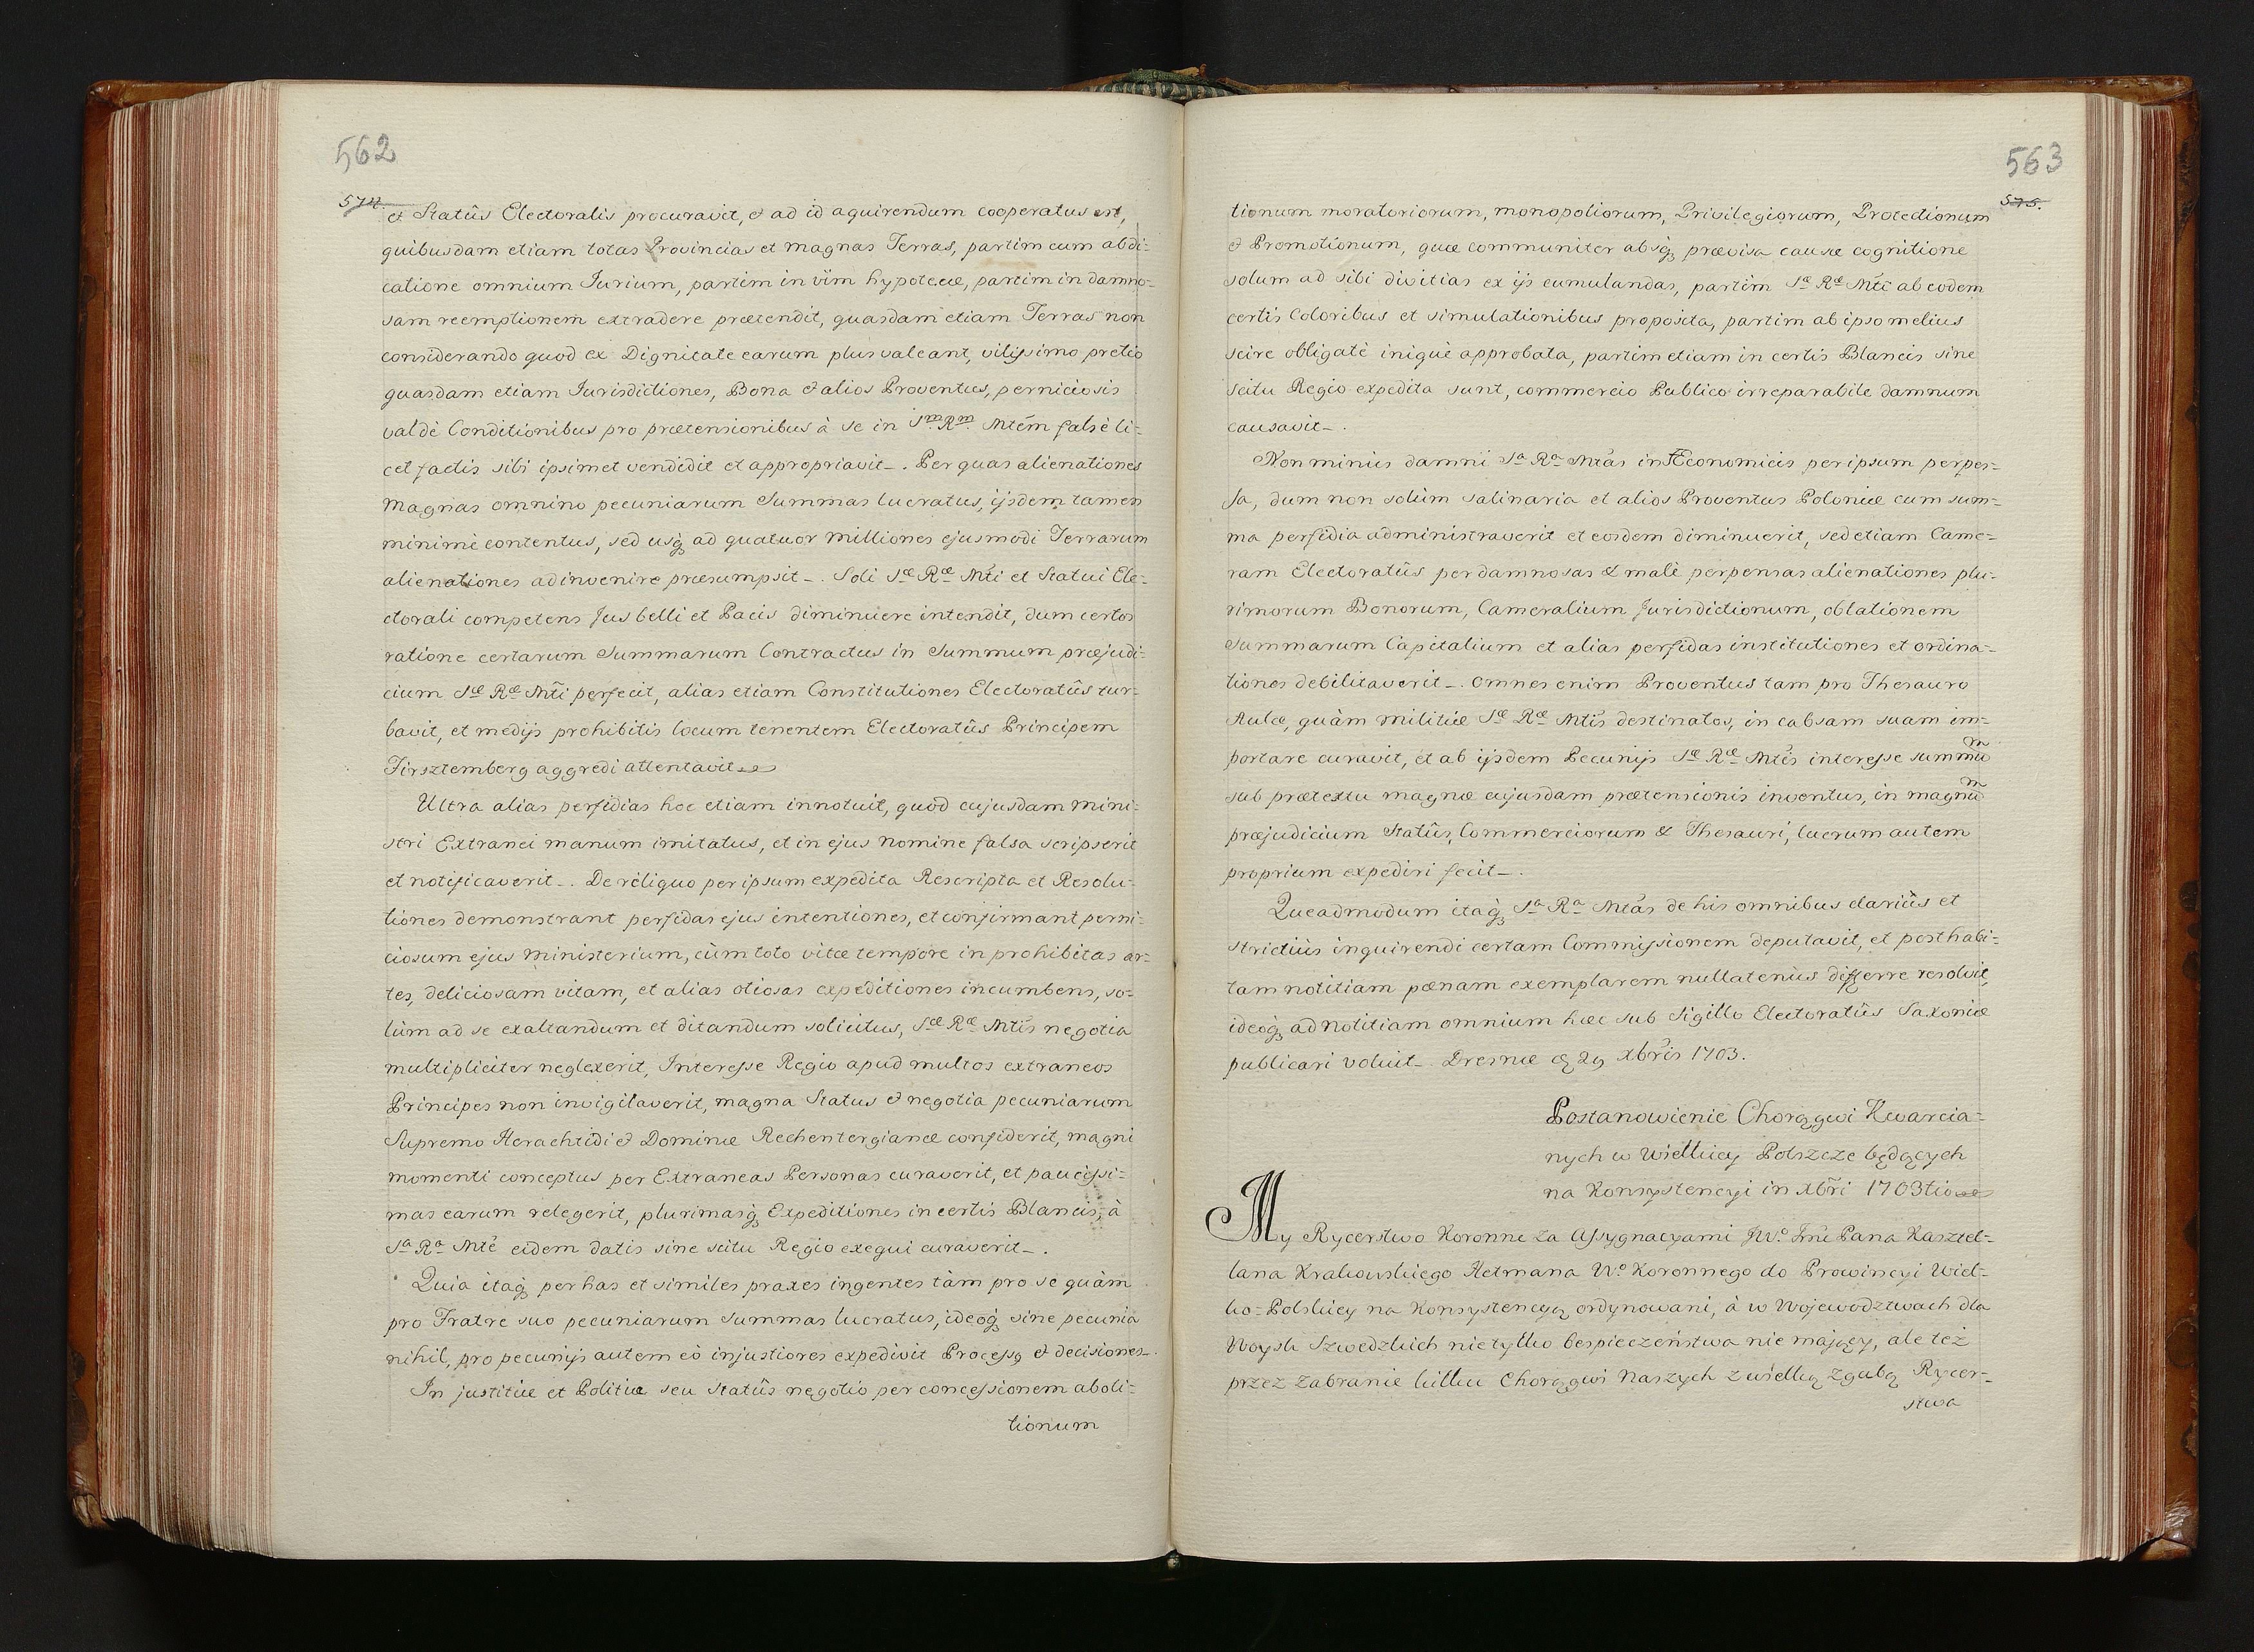 562
574.
et Statûs Electoralis procuravit, & ad id aquirendum cooperatus est,
quibusdam etiam totas Provincias et magnas Terras, partim cum abdi=
catione omnium Jurium, partim in vim hypotecæ, partim in damno=
sam reemptionem extradere prætendit, quasdam etiam Terras non
considerando quod ex Dignitate earum plus valeant, vilissimo pretio
quasdam etiam Jurisdictiones, Bona & alios Proventus, perniciosis
valdè Conditionibus pro prætensionibus à se in Sm. Rm. Mtem falsè li=
cet factis sibi ipsimet vendidit et appropriavit_. Per quas alienationes
magnas omnino pecuniarum Summas lucratus, ijsdem tamen
minimè contentus, sed usq₃ ad quatuor milliones ejusmodi Terrarum
alienationes adinvenire præsumpsit_. Soli Sæ Ræ Mti et Statui Ele=
ctorali competens Jus belli et Pacis diminuere intendit, dum certos
ratione certarum Summarum Contractus in Summum præjudi=
cium Sæ Ræ Mti perfecit, alias etiam Constitutiones Electoratûs tur=
bavit, et medijs prohibitis locum tenentem Electoratûs Principem
Firsztemberg aggredi attentavit
Ultra alias perfidias hoc etiam innotuit, quòd cujusdam mini=
stri Extranei manum imitatus, et in ejus nomine falsa scripserit
et notificaverit_. De reliquo per ipsum expedita Rescripta et Resolu=
tiones demonstrant perfidas ejus intentiones, et confirmant perni=
ciosum ejus ministerium, cùm toto vitæ tempore in prohibitas ar=
tes, deliciosam vitam, et alias otiosas expeditiones incumbens, so=
lùm ad se exaltandum et ditandum solicitus, Sæ Ræ Mtis negotia
multipliciter neglexerit, Interesse Regio apud multos extraneos
Principes non invigilaverit, magna Status & negotia pecuniarum
Supremo Herachtidi & Dominæ Rechentergianæ confiderit, magni
momenti conceptus per Extraneas Personas curaverit, et paucissi=
mas earum relegerit, plurimasq₃ Expeditiones in certis Blancis, à
Sa Ra Mte eidem datis sine scitu Regio exequi curaverit_.
Quia itaq₃ per has et similes praxes ingentes tàm pro se quàm
pro Fratre suo pecuniarum Summas lucratus, ideoq₃ sine pecunia
nihil, pro pecunijs autem eò injustiores expedivit Process9 & decisiones_.
In justitiæ et Politiæ seu Statûs negotio per concessionem aboli=
tionum
563
575.
tionum moratoriorum, monopoliorum, Privilegiorum, Protectionum
& Promotionum, quæ communiter absq₃ prævisa causæ cognitione
solum ad sibi divitias ex ijs cumulandas, partim Sa Ra Mti ab eodem
certis Coloribus et simulationibus proposita, partim ab ipso melius
scire obligatè iniquè approbata, partim etiam in certis Blancis sine
scitu Regio expedita sunt, commercio Publico irreparabile damnum
causavit_.
Non minùs damni Sa Ra Mtas in Æconomicis per ipsum perpes=
sa, dum non solùm salinaria et alios Proventus Poloniæ cum sum=
ma perfidia administraverit et eosdem diminuerit, sed etiam Came=
ram Electoratûs per damnosas & malè perpensas alienationes plu=
rimorum Bonorum, Cameralium Jurisdictionum, oblationem
Summarum Capitalium et alias perfidas institutiones et ordina=
tiones debilitaverit_. Omnes enim Proventus tam pro Thesauro
Aulæ, quàm militiæ Sæ Ræ Mtis destinatos, in cabsam suam im=
portare curavit, et ab ijsdem Pecunijs Sæ Ræ Mtis interesse summum
sub prætextu magnæ cujusdam prætensionis inventus, in magnum
præjudicium Statûs, Commerciorum & Thesauri, lucrum autem
proprium expediri fecit_.
Queadmodum itaq₃ Sa Ra Mtas de his omnibus clariùs et
strictiùs inquirendi certam Commissionem deputavit, et post habi=
tam notitiam pœnam exemplarem nullatenùs differre resolvit,
ideoq₃ ad notitiam omnium hæc sub Sigillo Electoratûs Saxoniæ
publicari voluit_. Dresnæ 29 Xbris 1703.
Postanowienie Chorągwi Kwarcia=
nych w Wielkiey Polszcze będących
na Konsystencyi in Xbri 1703tio
My Rycerstwo Koronne za Assygnacyami JWo Jmci Pana Kasztel=
lana Krakowskiego Hetmana Wo Koronnego do Prowincyi Wiel=
ko=Polskiey na Konsystencyą ordynowani, à w Wojewodztwach dla
Woysk Szwedzkich nie tylko bespieczeństwa nie mający, ale też
przez zabranie kilku Chorągwi Naszych z wielką zgubą Rycer=
stwa